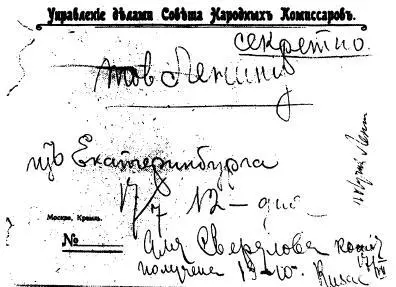 Управленіе дѣлами Совѣта Народныхъ Комиссаровъ.
секретно.
тов Ленину
изъ Екатеринбурга
17/7 12 – дня
Москва, Кремль.
№
для Свердлова копия
получена 13–10